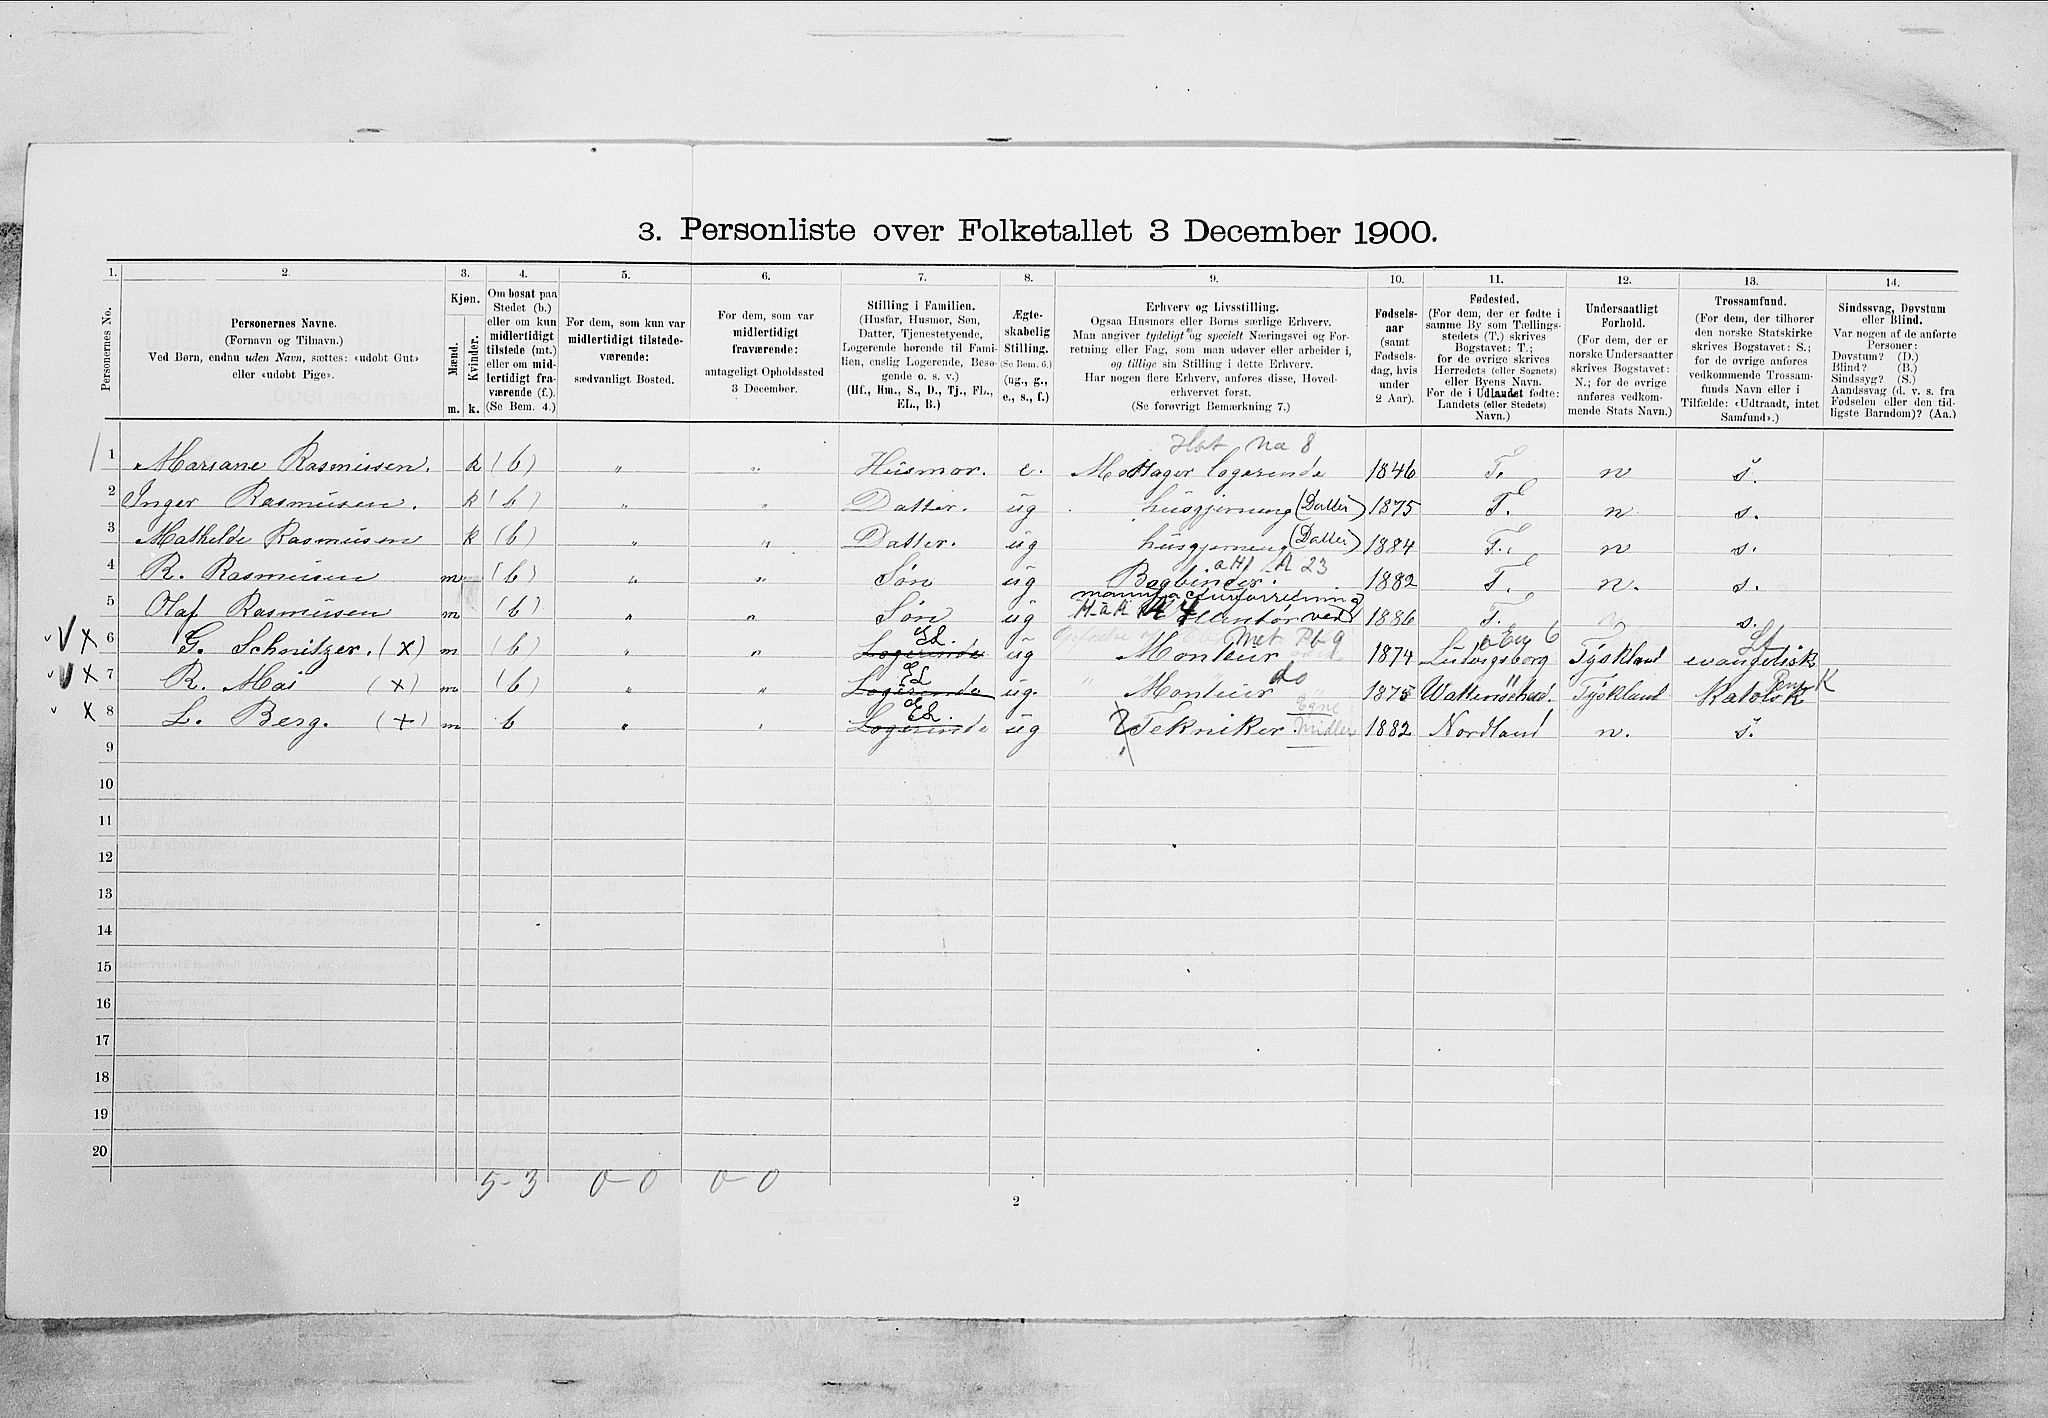 3. Personliste over Folketallet 3 December 1900.
1. 2. 3. 4. 5. 6. 7. 8. 9. 10. 11. 12. 13. 14.
Personernes No.
Personernes Navne.
(Fornavn og Tilnavn.)
Ved Børn, endnu uden Navn, sættes: «udøbt Gut»
eller «udøbt Pige».
Kjøn.
Mænd.
Kvinder.
m. k.
Om bosat paa
Stedet (b.)
eller om kun
midlertidigt
tilstede (mt.)
eller om mid-
lertidigt fra-
værende (f.).
(Se Bem. 4.)
For dem, som kun var
midlertidigt tilstede-
værende:
sædvanligt Bosted.
For dem, som var
midlertidigt
fraværende:
antageligt Opholdssted
3 December.
Stilling i Familien.
(Husfar, Husmor, Søn,
Datter, Tjenestetyende,
Logerende hørende til Fami-
lien, enslig Logerende, Besø-
gende o. s. v.)
(Hf., Hm., S., D., Tj., FL.,
EL., B.)
Ægte-
skabelig
Stilling.
(Se Bem. 6.)
(ug., g.,
e., s., f.)
Erhverv og Livsstilling.
Ogsaa Husmors eller Børns særlige Erhverv.
Man angiver tydeligt og specielt Næringsvei og For-
retning eller Fag, som man udøver eller arbeider i,
og tillige sin Stilling i dette Erhverv.
Har nogen flere Erhverv, anføres disse, Hoved-
erhvervet først.
(Se forøvrigt Bemærkning 7.)
Fødsels-
aar
(samt
Fødsels-
dag, hvis
under
2 Aar).
Fødested.
(For dem, der er fødte i
samme By som Tællings-
stedets (T.) skrives
Bogstavet: T.;
for de øvrige skrives
Herredets (eller Sognets)
eller Byens Navn.
For de i Udlandet fødte:
Landets (eller Stedets)
Navn.)
Undersaatligt
Forhold.
(For dem, der er
norske Undersaatter
skrives Bogstavet:
N.; for de øvrige
anføres vedkom-
mende Stats Navn.)
Trossamfund.
(For dem, der tilhører
den norske Statskirke
skrives Bogstavet: S.;
for de øvrige anføres
vedkommende Trossam-
funds Navn eller i
Tilfælde: «Udtraadt, intet
Samfund».)
Sindssvag, Døvstum
eller Blind.
Var nogen af de anførte
Personer:
Døvstum? (D.)
Blind? (B.)
Sindssyg? (S.)
Aandssvag (d. v. s. fra
Fødselen eller den tid-
ligste Barndom)? (Aa.)
Hot Na 8
1 Mariane Rasmussen. k (b) " " Husmor. e. Mottager logerende 1846 T. n s.
2 Inger Rasmusen. k (b) " " Datter. ug husgjerning (Datter) 1875 T. n s.
3 Mathilde Rasmusen k (b) " " Datter. ug husgjerning (Datter) 1884 T. n s.
A 23
4 R. Rasmusen m (b) " " Søn ug Bogbinder. 1882 T. n. s.
manufacturforretning
5 Olaf Rasmusen m (b) " " Søn ug Kontor ved 1886 T. s.
EL. Met Pb 9
6 G. Schnitzer. (x) m (b) " " Logerende ug Monteur 1874 Ludvigsborg Tyskland evangelisk
EL do
7 R. Mai (x) m (b) " " Logerende ug. Monteur 1875 Tyskland Katolsk
EL. Egne
8 L. Berg. (x) m b " " Logerende ug Tekniker Midler 1882 Nordland n. s.
9
10
11
12
13
14
15
16
17
18
19
20
5-3 0-0 0-0
2